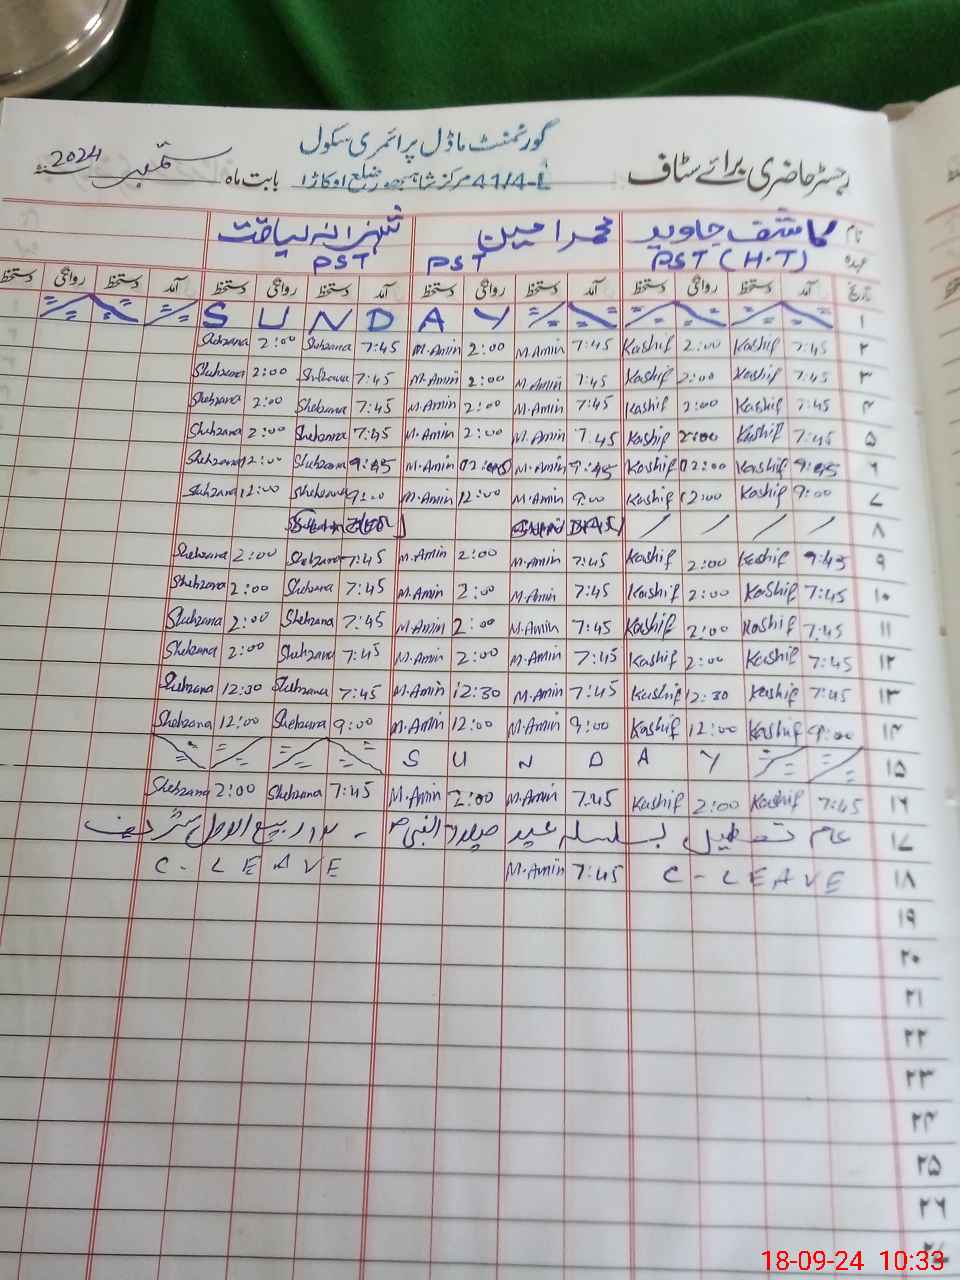 گورنمنٹ ماڈل پرائمری سکول
رجسٹر حاضری برائے سٹاف 41/4-L مرکز شاہبھور ضلع اوکاڑا بابت ماہ ستمبر 2024
نام کاشف جاوید محمد امین شہزانہ لیاقت
عہدہ PST (H.T) PST PST
تاریخ آمد دستخط روانگی دستخط آمد دستخط روانگی دستخط آمد دستخط روانگی دستخط آمد دستخط روانگی دستخط
۱ SUNDAY
۲ 7:45 Kashif 2:00 Kashif 7:45 M.Amin 2:00 M.Amin 7:45 Shehzana 2:00 Shehzana
۳ 7:45 Kashif 2:00 Kashif 7:45 M.Amin 2:00 M.Amin 7:45 Shehzana 2:00 Shehzana
۴ 7:45 Kashif 2:00 Kashif 7:45 M.Amin 2:00 M.Amin 7:45 Shehzana 2:00 Shehzana
۵ 7:45 Kashif 2:00 Kashif 7:45 M.Amin 2:00 M.Amin 7:45 Shehzana 2:00 Shehzana
۶ 9:45 Kashif 02:00 Kashif 9:45 M.Amin M.Amin 9:45 Shehzana 12:00 Shehzana
۷ 9:00 Kashif 12:00 Kashif 9:00 M.Amin 12:00 M.Amin 9:00 Shehzana 12:00 Shehzana
۸ / / / / SUNDAY
۹ 9:45 Kashif 2:00 Kashif 7:45 M.Amin 2:00 M.Amin 7:45 Shehzana 2:00 Shehzana
۱۰ 7:45 Kashif 2:00 Kashif 7:45 M.Amin 2:00 M.Amin 7:45 Shehzana 2:00 Shehzana
۱۱ 7:45 Kashif 2:00 Kashif 7:45 M.Amin 2:00 M.Amin 7:45 Shehzana 2:00 Shehzana
۱۲ 7:45 Kashif 2:00 Kashif 7:45 M.Amin 2:00 M.Amin 7:45 Shehzana 2:00 Shehzana
۱۳ 7:45 Kashif 12:30 Kashif 7:45 M.Amin 12:30 M.Amin 7:45 Shehzana 12:30 Shehzana
۱۴ 9:00 Kashif 12:00 Kashif 9:00 M.Amin 12:00 M.Amin 9:00 Shehzana 12:00 Shehzana
۱۵ SUNDAY
۱۶ 7:45 Kashif 2:00 Kashif 7:45 M.Amin 2:00 M.Amin 7:45 Shehzana 2:00 Shehzana
۱۷ عام تعطیل بسلسلہ عید میلاد النبیؐ - ۱۲ ربیع الاول شریف
۱۸ C-LEAVE 7:45 M.Amin C-LEAVE
۱۹
۲۰
۲۱
۲۲
۲۳
۲۴
۲۵
۲۶
۲۷
18-09-24 10:33